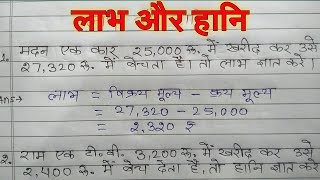 लाभ और हानि
1. मदन एक कार 25,000 रु. में खरीद कर उसे
27,320 रु. में बेचता है। तो लाभ ज्ञात करे।
Ans→ लाभ = विक्रय मूल्य - क्रय मूल्य
= 27,320 - 25,000
= 2,320 ₹
2. राम एक टी.वी. 3,200 रु. में खरीद कर उसे
2,400 रु. में बेच देता है, तो हानि ज्ञात करे